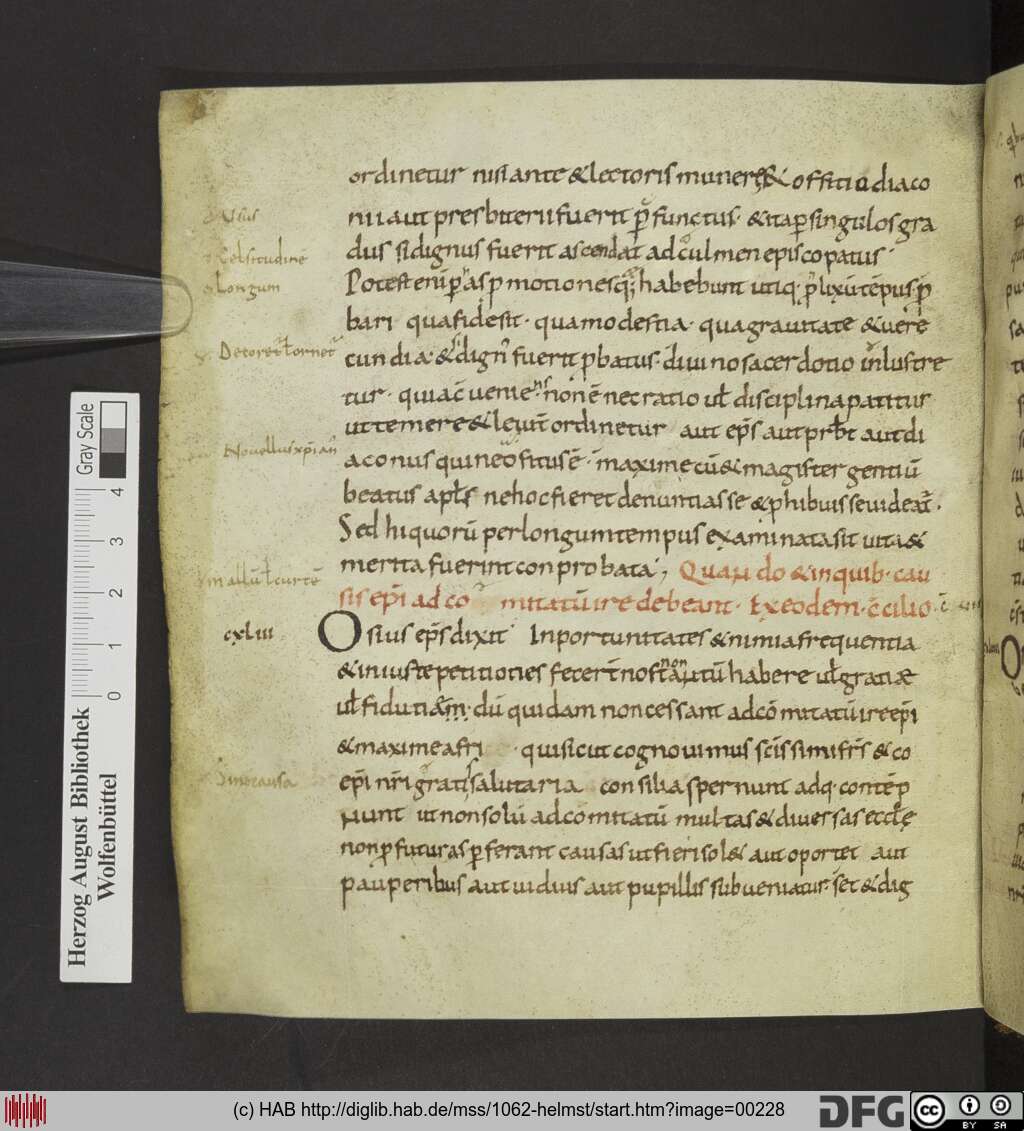 ordinetur nisi ante & lectoris munere & offitio diaco
nii aut presbiterii fuerit p̄functus · & ita p singulos gra
dus si dignus fuerit ascendat ad culmen episcopatus ·
Potest eni p has pmotiones q; habebunt utiq · plixū tēpus p
bari qua fide sit · qua modestia · qua grauitate & uere
cundia · & si dign' fuerit pbatus · diuino sacerdotio inlustre
tur · quia c̄ueniens non ē nec ratio ul disciplina patitur
ut temere & leuit ordinetur aut ep̄s aut prb̄t aut di
aconus qui neofitus ē · maxime cū & magister gentiū
beatus apl̄s ne hoc fieret denuntiasse & phibuisse uideat̄ ·
Sed hi quorū per longum tempus examinata sit uita &
merita fuerint conprobata ; Quando & in quib · cau
sis ep̄i ad comitatū ire debeant · Ex eodem · c̄cilio · c̄
cxliii Osius ep̄s dixit Inportunitates & nimia frequentia
& iniuste petitiones fecert nos n̄ tantū habere ul gratiæ
ul fidutiam · dū quidam non cessant ad comitatū ire ep̄i
& maxime afri qui sicut cognouimus scīssimi fr̄is & co
ep̄i nr̄i grati salutaria consilia spernunt adq · contēp
nunt ut non solū ad comitatū multas & diuersas eccl̄ę
non pfuturas pferant causas ut fieri sol& aut oportet aut
pauperibus aut uiduis aut pupillis subueniatur set & dig
Celsitudinē
Longum
Nouellus xp̄ian'
mallū l curtē
Sine causa
Gray Scale
4
3
2
1
0
Herzog August Bibliothek
Wolfenbüttel
(c) HAB http://diglib.hab.de/mss/1062-helmst/start.htm?image=00228
DFG
cc BY SA